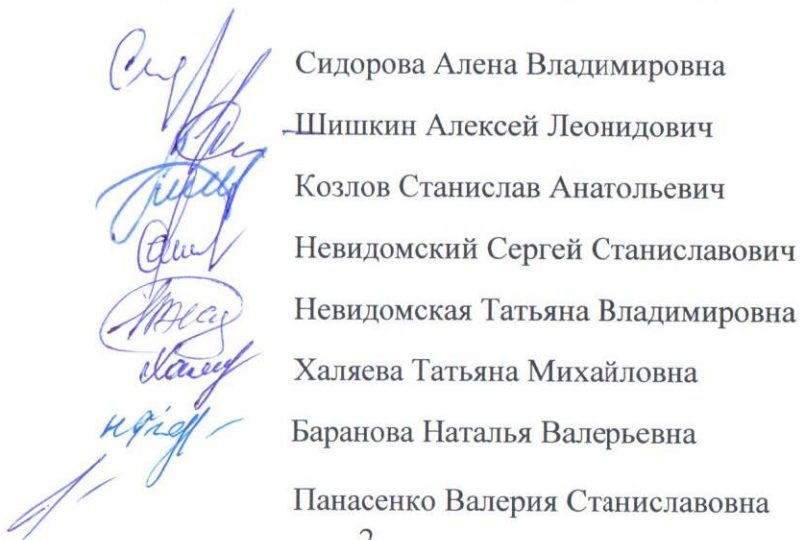 Сидорова Алена Владимировна
Шишкин Алексей Леонидович
Козлов Станислав Анатольевич
Невидомский Сергей Станиславович
Невидомская Татьяна Владимировна
Халяева Татьяна Михайловна
Баранова Наталья Валерьевна
Панасенко Валерия Станиславовна
2